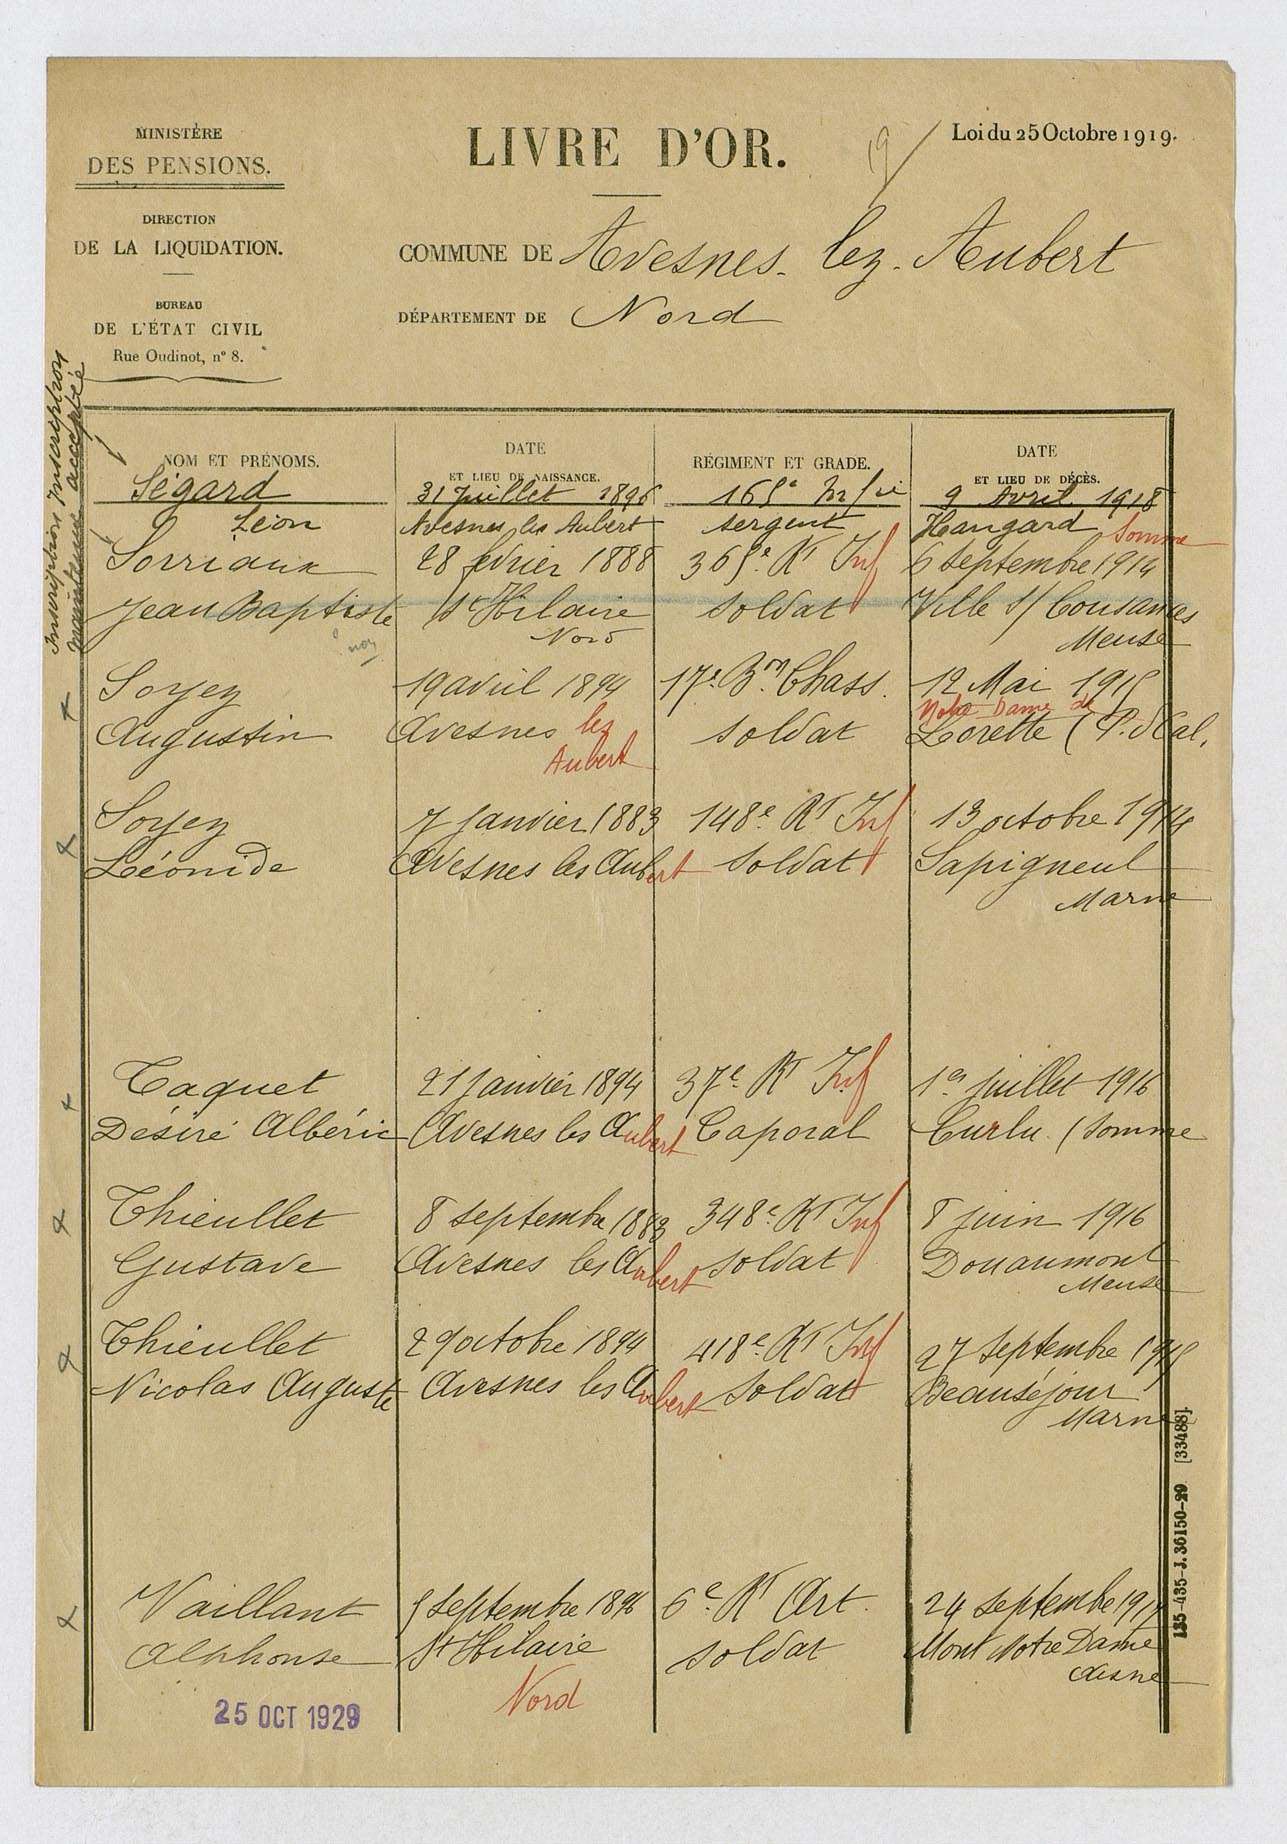 MINISTÈRE
DES PENSIONS.
DIRECTION
DE LA LIQUIDATION.
BUREAU
DE L'ÉTAT CIVIL
Rue Oudinot, n° 8.
LIVRE D'OR.
19
Loi du 25 Octobre 1919.
COMMUNE DE Avesnes-lez-Aubert
DÉPARTEMENT DE Nord
Inscription Inscription
maintenue acceptée
NOM ET PRÉNOMS. DATE ET LIEU DE NAISSANCE. RÉGIMENT ET GRADE. DATE ET LIEU DE DÉCÈS.
Ségard 31 Juillet 1896 165e Inf ie 9 Avril 1918
Léon Avesnes les Aubert sergent Hangard Somme
Sorriaux 28 février 1888 365e Rt Inf 6 septembre 1914
Jean Baptiste St Hilaire soldat Ville s/ Cousances
non Nord Meuse
Soyez 19 avril 1894 17e Bon Chass. 12 Mai 1915
Augustin Avesnes lez Aubert soldat Notre Dame de Lorette (P. d Cal.
Soyez 7 Janvier 1883 148e Rt Inf 13 octobre 1914
Léonide Avesnes les Aubert soldat Sapigneul
Marne
Taquet 21 janvier 1894 37e Rt Inf 1er juillet 1916
Désiré Albéric Avesnes les Aubert Caporal Curlu (Somme
Thieullet 8 septembre 1883 348e Rt Inf 8 juin 1916
Gustave Avesnes les Aubert soldat Douaumont
Meuse
Thieullet 29 octobre 1894 418e Rt Inf 27 septembre 1915
Nicolas Auguste Avesnes les Aubert soldat Beauséjour
Marne
Vaillant 5 septembre 1896 6e Rt Art. 24 septembre 1917
Alphonse St Hilaire soldat Mont Notre Dame
Nord Aisne
25 OCT 1929
135-435-J. 36150-29 [33488].